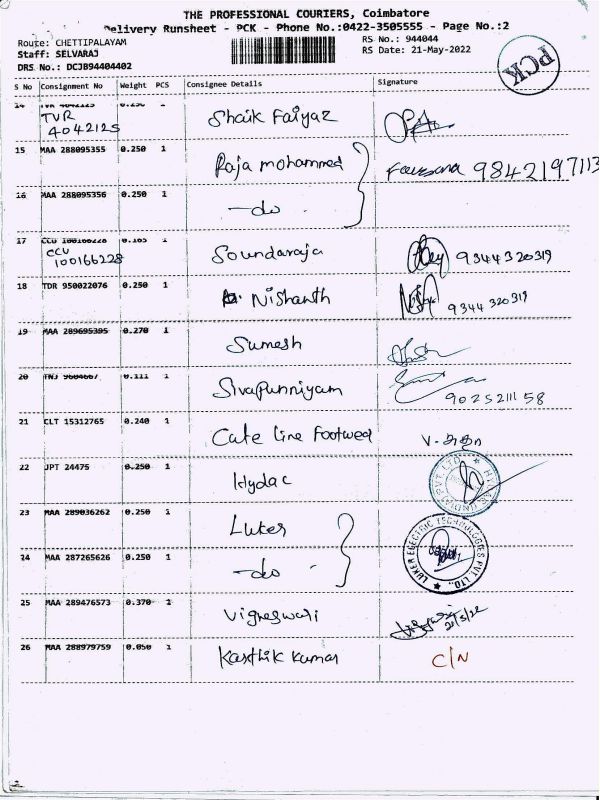 THE PROFESSIONAL COURIERS, Coimbatore
Delivery Runsheet - PCK - Phone No.:0422-3505555 - Page No.:2
Route: CHETTIPALAYAM
Staff: SELVARAJ
DRS No.: DCJB94404402
RS No.: 944044
RS Date: 21-May-2022
PCK
S No Consignment No Weight PCS Consignee Details Signature
14 TVR 4042125 0.250 1 Shaik Faiyaz
TVR
4042125
15 MAA 288095355 0.250 1 Raja mohammed 9842197113
16 MAA 288095356 0.250 1 -do-
17 CCU 100166228 0.165 1 Soundaraja 9344320319
CCU
100166228
18 TDR 950022076 0.250 1 Nishanth 9344320319
19 MAA 289695395 0.270 1 Sumesh
20 TNJ 9604667 0.111 1 Sivapunniyam 9025211158
21 CLT 15312765 0.240 1 Cate line Footwed
22 JPT 24475 0.250 1 Hydac
23 MAA 289036262 0.250 1 Luker
LUKER ELECTRIC TECHNOLOGIES PVT. LTD.,
24 MAA 287265626 0.250 1 -do-
25 MAA 289476573 0.370 1 Vigneswari 21/5/22
26 MAA 288979759 0.050 1 Karthik Kumar C/N